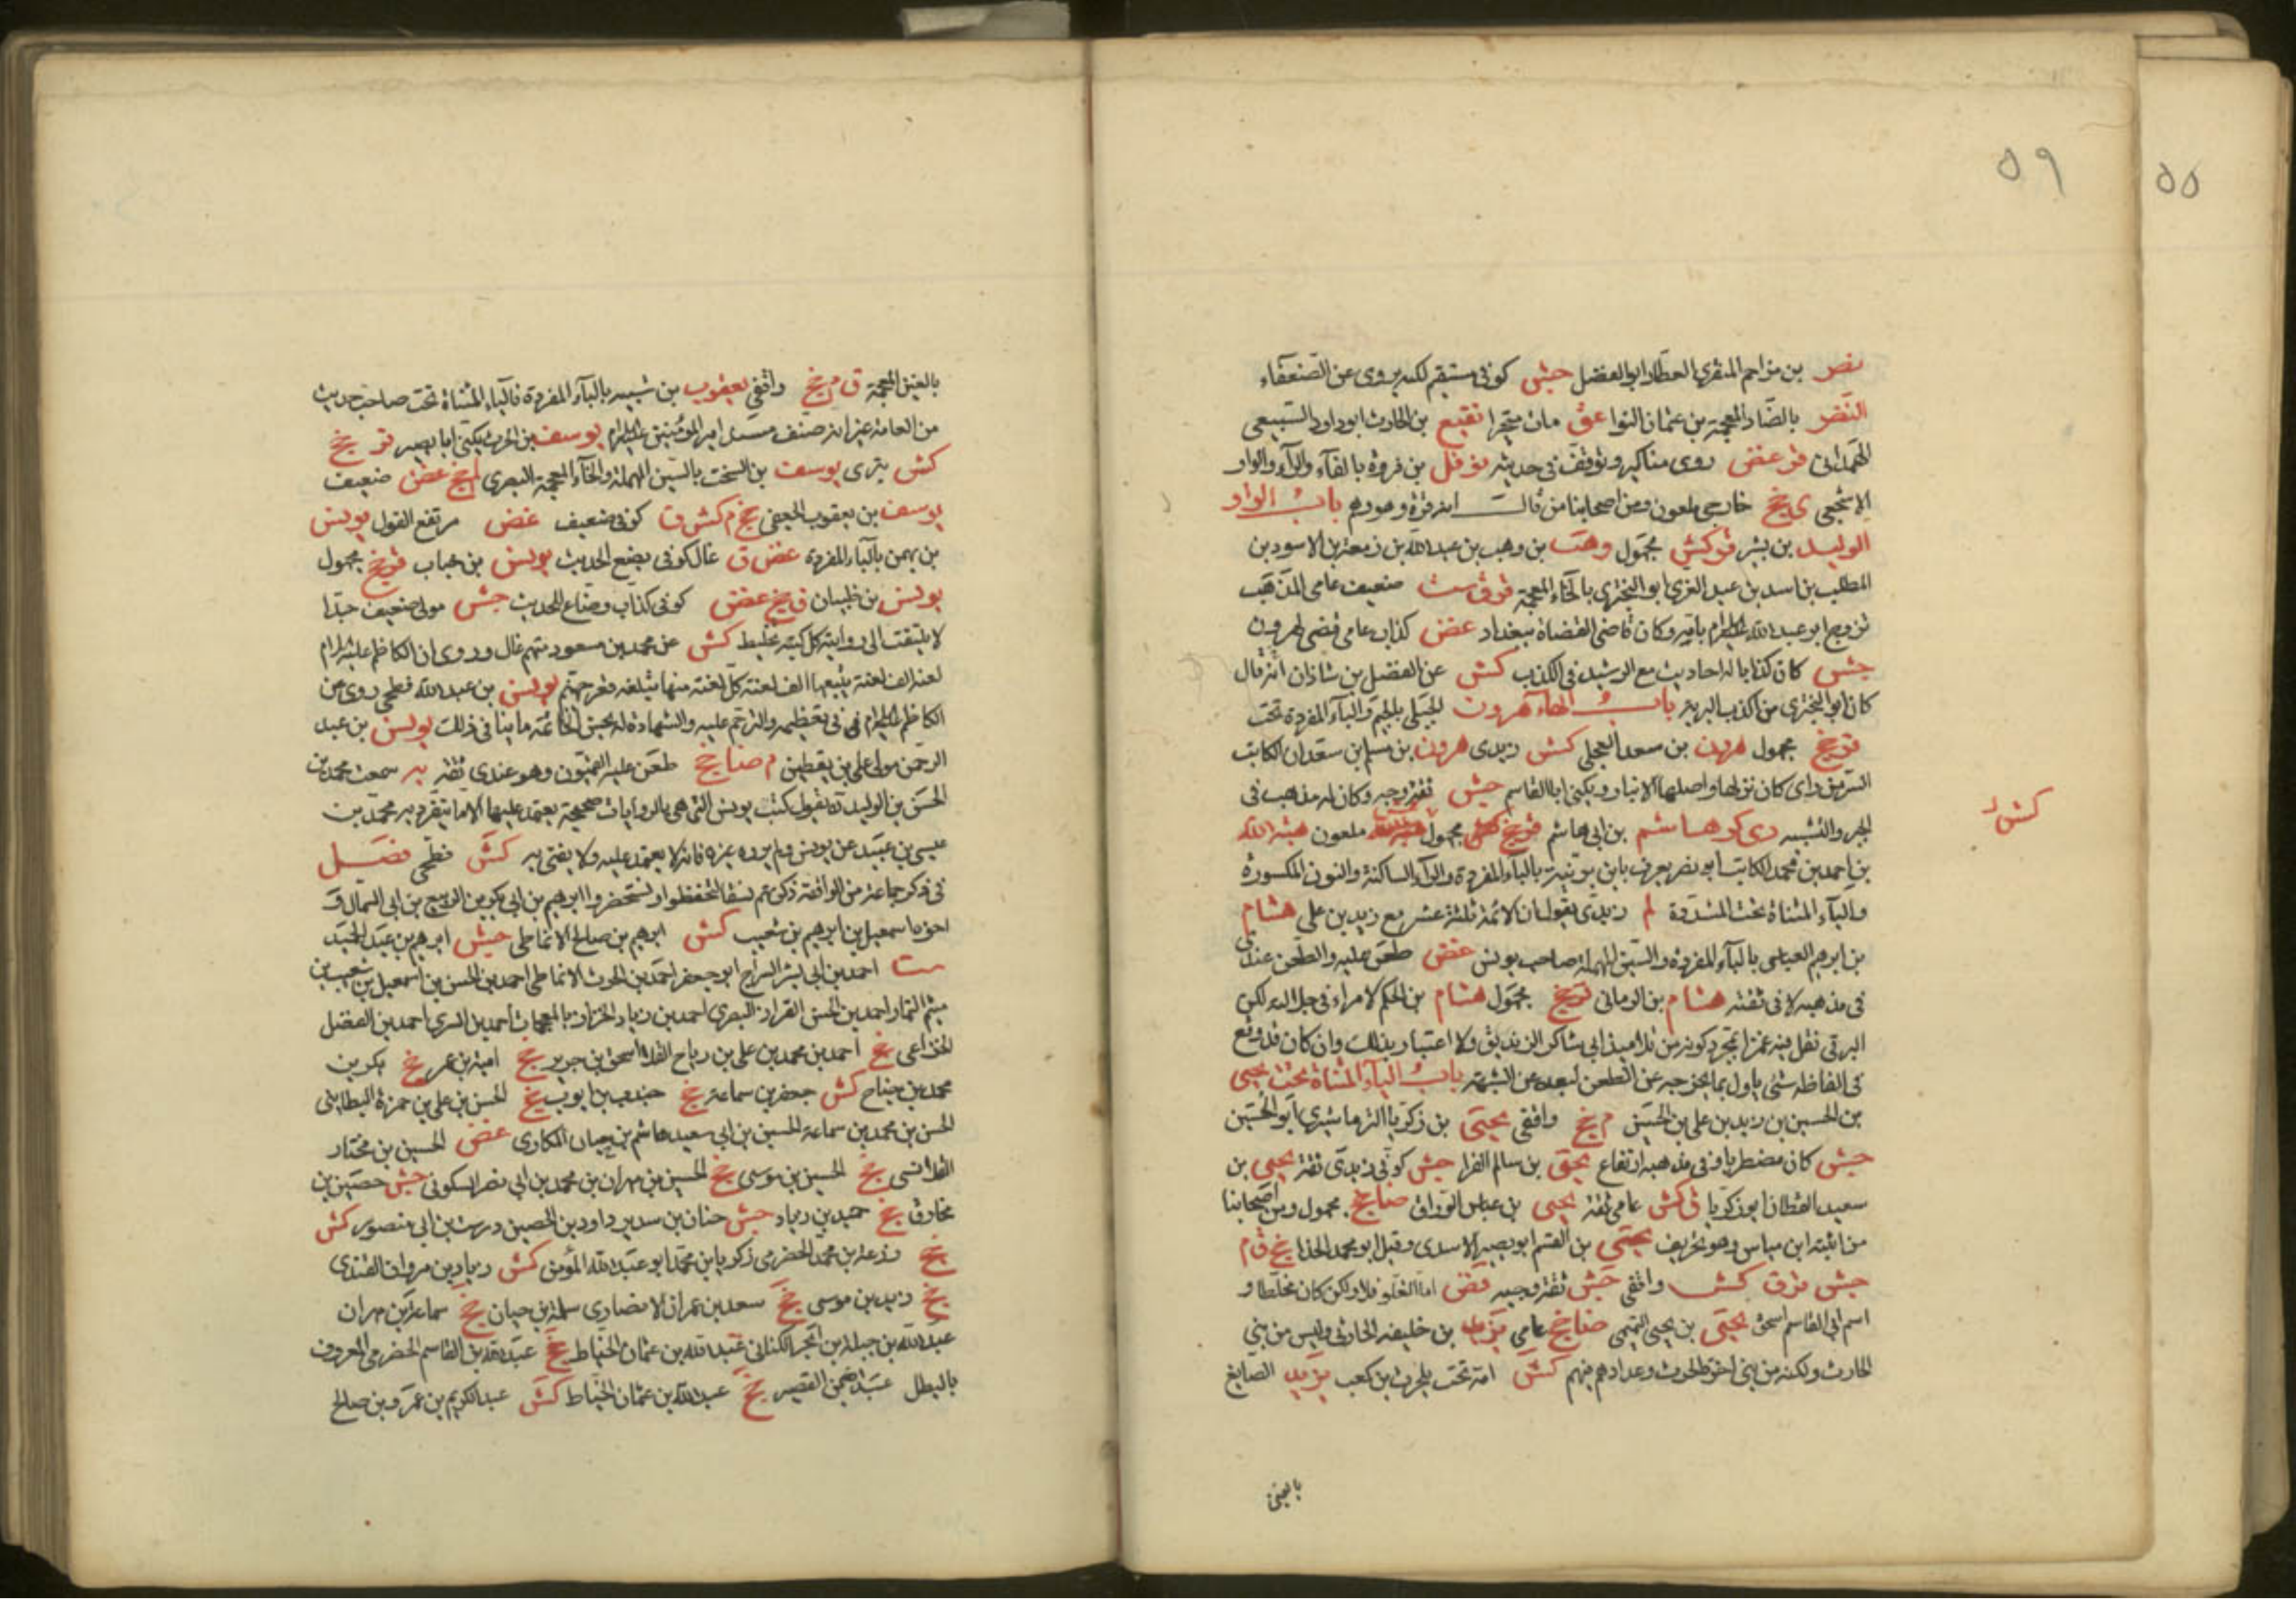 ٥٩
٥٥
نصر بن مزاحم المنقري العطار ابو الفضل جش كوفى مستقيم لكنه يروى عن الضعفاء
النضر بالضاد المعجمة بن عثمان النوا عق مات متحيرا نفيع بن الحارث ابو داود السبيعى
الهمدانى قر غض روى مناكير وتوقف فى حديثه نوفل بن فروة بالفاء والراء والواو
الاشجعى ى خج خارجى ملعون ومن اصحابنا من قال انه قرة وهو وهم باب الواو
الوليد بن بشر قر كش مجهول وهب بن وهب بن عبد الله بن زمعة بن الاسود بن
المطلب بن اسد بن عبد العزى ابو البخترى بالخاء المعجمة ق ست ضعيف عامى المذهب
تزوج ابو عبد الله عليه السلام بامه وكان قاضى القضاة ببغداد غض كذاب عامى قضى لهرون
جش كان كذابا له احاديث مع الرشيد فى الكذب كش عن الفضل بن شاذان انه قال
كان ابو البخترى من اكذب البرية باب الهاء هرون الجبلى بالجيم والباء المفردة تحت
قر خج مجهول هرون بن سعد العجلى كش زيدى هرون بن مسلم بن سعدان الكاتب
السرمن راى كان نزلها واصلها الانبار ويكنى ابا القاسم جش ثقة وجه وكان له مذهب فى
كش
الجبر والتشبيه دى كر هاشم بن ابى هاشم قر خج مجهول ملعون هبة الله
بن احمد بن محمد الكاتب ابو نصر يعرف بابن برنية بالباء المفردة والراء الساكنة والنون المكسورة
والياء المثناة تحت المشددة لم زيدى يقول ان الائمة ثلثة عشر مع زيد بن على هشام
بن ابرهيم العباسى بالباء المفردة والسين المهملة صاحب يونس غض طعن عليه والطعن عندى
فى مذهبه لا فى ثقته هشام بن الرمانى قر خج مجهول هشام بن الحكم لا مراء فى جلالته لكن
البرقى نقل فيه غمزا بمجرد كونه من تلاميذ ابى شاكر الزنديق ولا اعتبار بذلك وان كان قد وقع
فى الفاظه شئ ياول بما يخرجه عن الطعن لبعده عن الشبهة باب الياء المثناة تحت يحيى
بن الحسين بن زيد بن على بن الحسين م خج واقفى يحيى بن زكريا الترماشيرى ابو الحسين
جش كان مضطربا وفى مذهبه ارتفاع يحيى بن سالم الفرا جش كوفى زيدى ثقة يحيى بن
سعيد القطان ابو زكريا ق كش عامى ثقة يحيى بن عباس الوراق ضا خج مجهول ومن اصحابنا
من اثبته ابن مياس وهو تحريف يحيى بن القسم ابو بصير الاسدى وقيل ابو محمد الحذا خج ق م
جش قر ق كش واقفى جش ثقة وجيه غض اما الغلو فلا ولكن كان مخلطا و
اسم ابى القاسم اسحق يحيى بن يحيى التميمى ضا خج عامى يزيد بن خليفة الحارثى وليس من بنى
الحارث ولكنه من بنى اخوة الحرث وعدادهم فيهم كش امة تحت بلحرث بن كعب يزيد الصايغ
بالغين
بالغين المعجمة ق م خج واقفى يعقوب بن شيبه بالباء المفردة فالياء المثناة تحت صاحب حديث
من العامة غير انه صنف مسند امير المؤمنين عليه السلام يوسف بن الحرث يكنى ابا بصير قر خج
كش بترى يوسف بن السخت بالسين المهملة والخاء المعجمة البصرى لم خج غض ضعيف
يوسف بن يعقوب الجعفى خج م كش ق كوفى ضعيف غض مرتفع القول يونس
بن بهمن بالباء المفردة غض ق غال كوفى يضع الحديث يونس بن خباب قر خج مجهول
يونس بن ظبيان ق خج غض كوفى كذاب وضاع للحديث جش مولى ضعيف جدا
لا يلتفت الى روايته كل كتبه تخليط كش عن محمد بن مسعود متهم غال وروى ان الكاظم عليه السلام
لعنه الف لعنة يتبعها الف لعنة كل لعنة منها تبلغه قعر جهنم يونس بن عبد الله فطحى روى عن
الكاظم عليه السلام فى تعظيمه والترحم عليه والشهادة له بحسن الخاتمة ما ينافى ذلك يونس بن عبد
الرحمن مولى على بن يقطين م ضا خج طعن عليه القميون وهو عندى ثقة يه سمعت محمد بن
الحسن بن الوليد ره يقول كتب يونس التى هى بالروايات صحيحة يعتمد عليها الا ما يتفرد به محمد بن
عيسى بن عبيد عن يونس ولم يروه غيره فانه لا يعتمد عليه ولا يفتى به كش فطحى فصل
فى ذكر جماعة من الواقفة ذكرتهم نسقا لتحفظوا وتستحضروا ابرهيم بن ابى بكر بن الربيع بن ابى السمال و
اخوه اسمعيل بن ابرهيم بن شعيب كش ابرهيم بن صالح الانماطى جش ابرهيم بن عبد الحميد
ست احمد بن ابى بشر السراج ابو جعفر احمد بن الحرث الانماطى احمد بن الحسن بن اسمعيل بن شعيب بن
ميثم التمار احمد بن الحسن القزاز البصرى احمد بن زياد الخزاز بالمعجمات احمد بن السرى احمد بن الفضل
الخزاعى خج احمد بن محمد بن على بن رباح القلا اسحق بن جرير خج امية بن عمر خج بكر بن
محمد بن جناح كش جعفر بن سماعة خج جندب بن ايوب خج الحسن بن على بن حمزة البطاينى
الحسن بن محمد بن سماعة الحسين بن ابى سعيد هاشم بن حيان المكارى غض الحسين بن مختار
القلانسى خج الحسين بن موسى خج الحسين بن مهران بن محمد بن ابى نصر السكونى جش حصين بن
مخارق خج حميد بن زياد جش حنان بن سدير داود بن الحصين درست بن ابى منصور كش
خج زرعة بن محمد الحضرمى زكريا بن محمد ابو عبد الله المؤمن كش زياد بن مروان القندى
خج زيد بن موسى خج سعد بن عمران الانصارى سلمة بن حيان خج سماعة بن مهران
عبد الله بن جبلة بن ابجر الكنانى عبد الله بن عثمان الخياط خج عبد الله بن القاسم الحضرمى المعروف
بالبطل عبد الرحمن القصير خج عبد الله بن عثمان الخياط كش عبد الكريم بن عمرو بن صالح